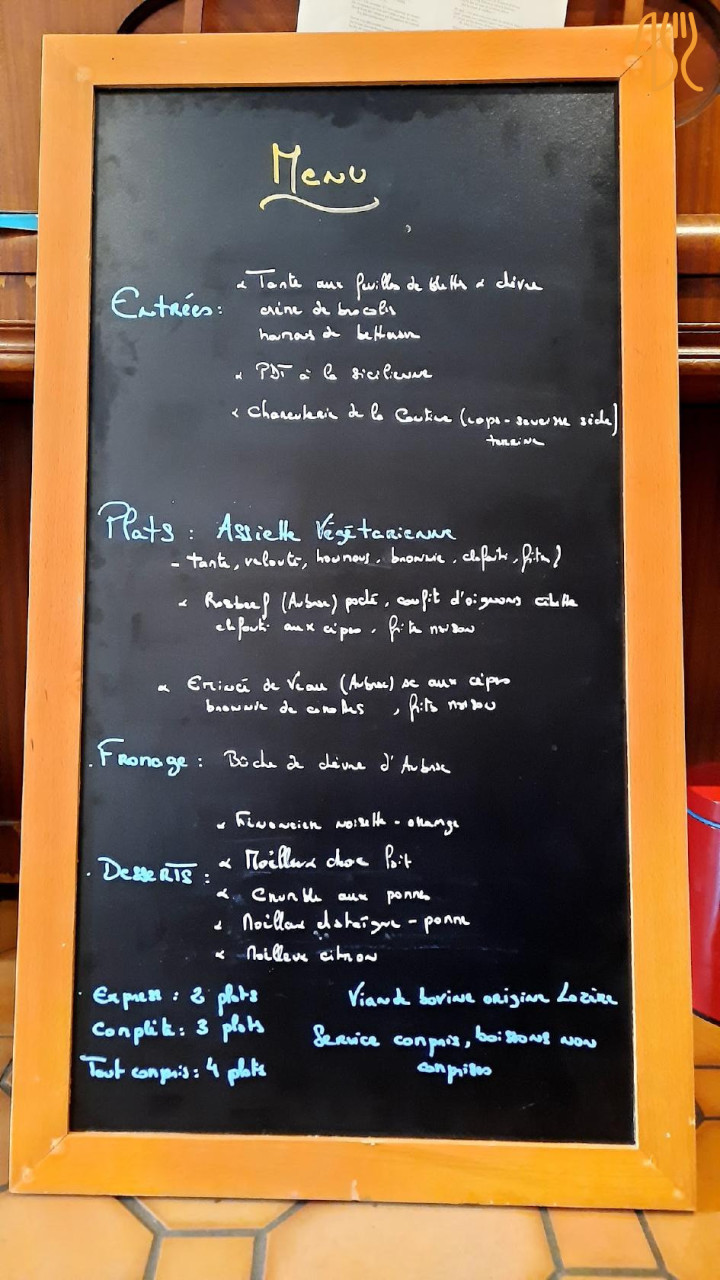 Menu
Entrées :
× Tarte aux feuilles de blettes & chèvre
crème de brocolis
houmous de betterave
× PDT à la sicilienne
× Charcuterie de la Cantine ( - saucisse sèche)
terrine
Plats : Assiette Végétarienne
- tarte, velouté, houmous, brownie, clafouti, frites)
× Rosbeef (Aubrac) poché, confit d'oignons
clafouti aux cèpes, frites maison
× Emincé de Veau (Aubrac) sc aux cèpes
brownie de carottes, frites maison
. Fromage : Bûche de chèvre d'Aubrac
. Desserts :
× Financier noisette - orange
× Moëlleux choc lait
× Crumble aux pommes
× Moëlleux chataîgne - pomme
× Moëlleux citron
. Express : 2 plats
Complète : 3 plats
Tout compris : 4 plats
Viande bovine origine Lozère
Service compris, boissons non
comprises